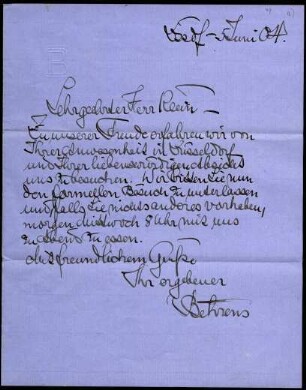 Düsdf – Juni 04.
Sehrgeehrter Herr Klein –
Zu unserer Freude erfahren wir von
Ihrer Anwesenheit in Düsseldorf
und Ihrer liebenswürdigen Absicht
uns zu besuchen. Wir bitten Sie nun
den formellen Besuch zu unterlassen
und falls Sie nichts anderes vorhaben,
morgen Mittwoch 8 Uhr mit uns
zu abend zu essen.
Mit freundlichem Gruße
Ihr ergebener
Behrens